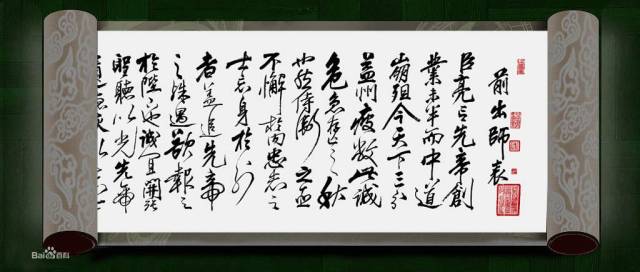 前出師表
臣亮言先帝創
業未半而中道
崩殂今天下三分
益州疲敝此誠
危急存亡之秋
也然侍衛之臣
不懈於內忠志之
士忘身於外
者蓋追先帝
之殊遇欲報之
於陛下也誠宜開張
聖聽以光先帝
Baidu百科